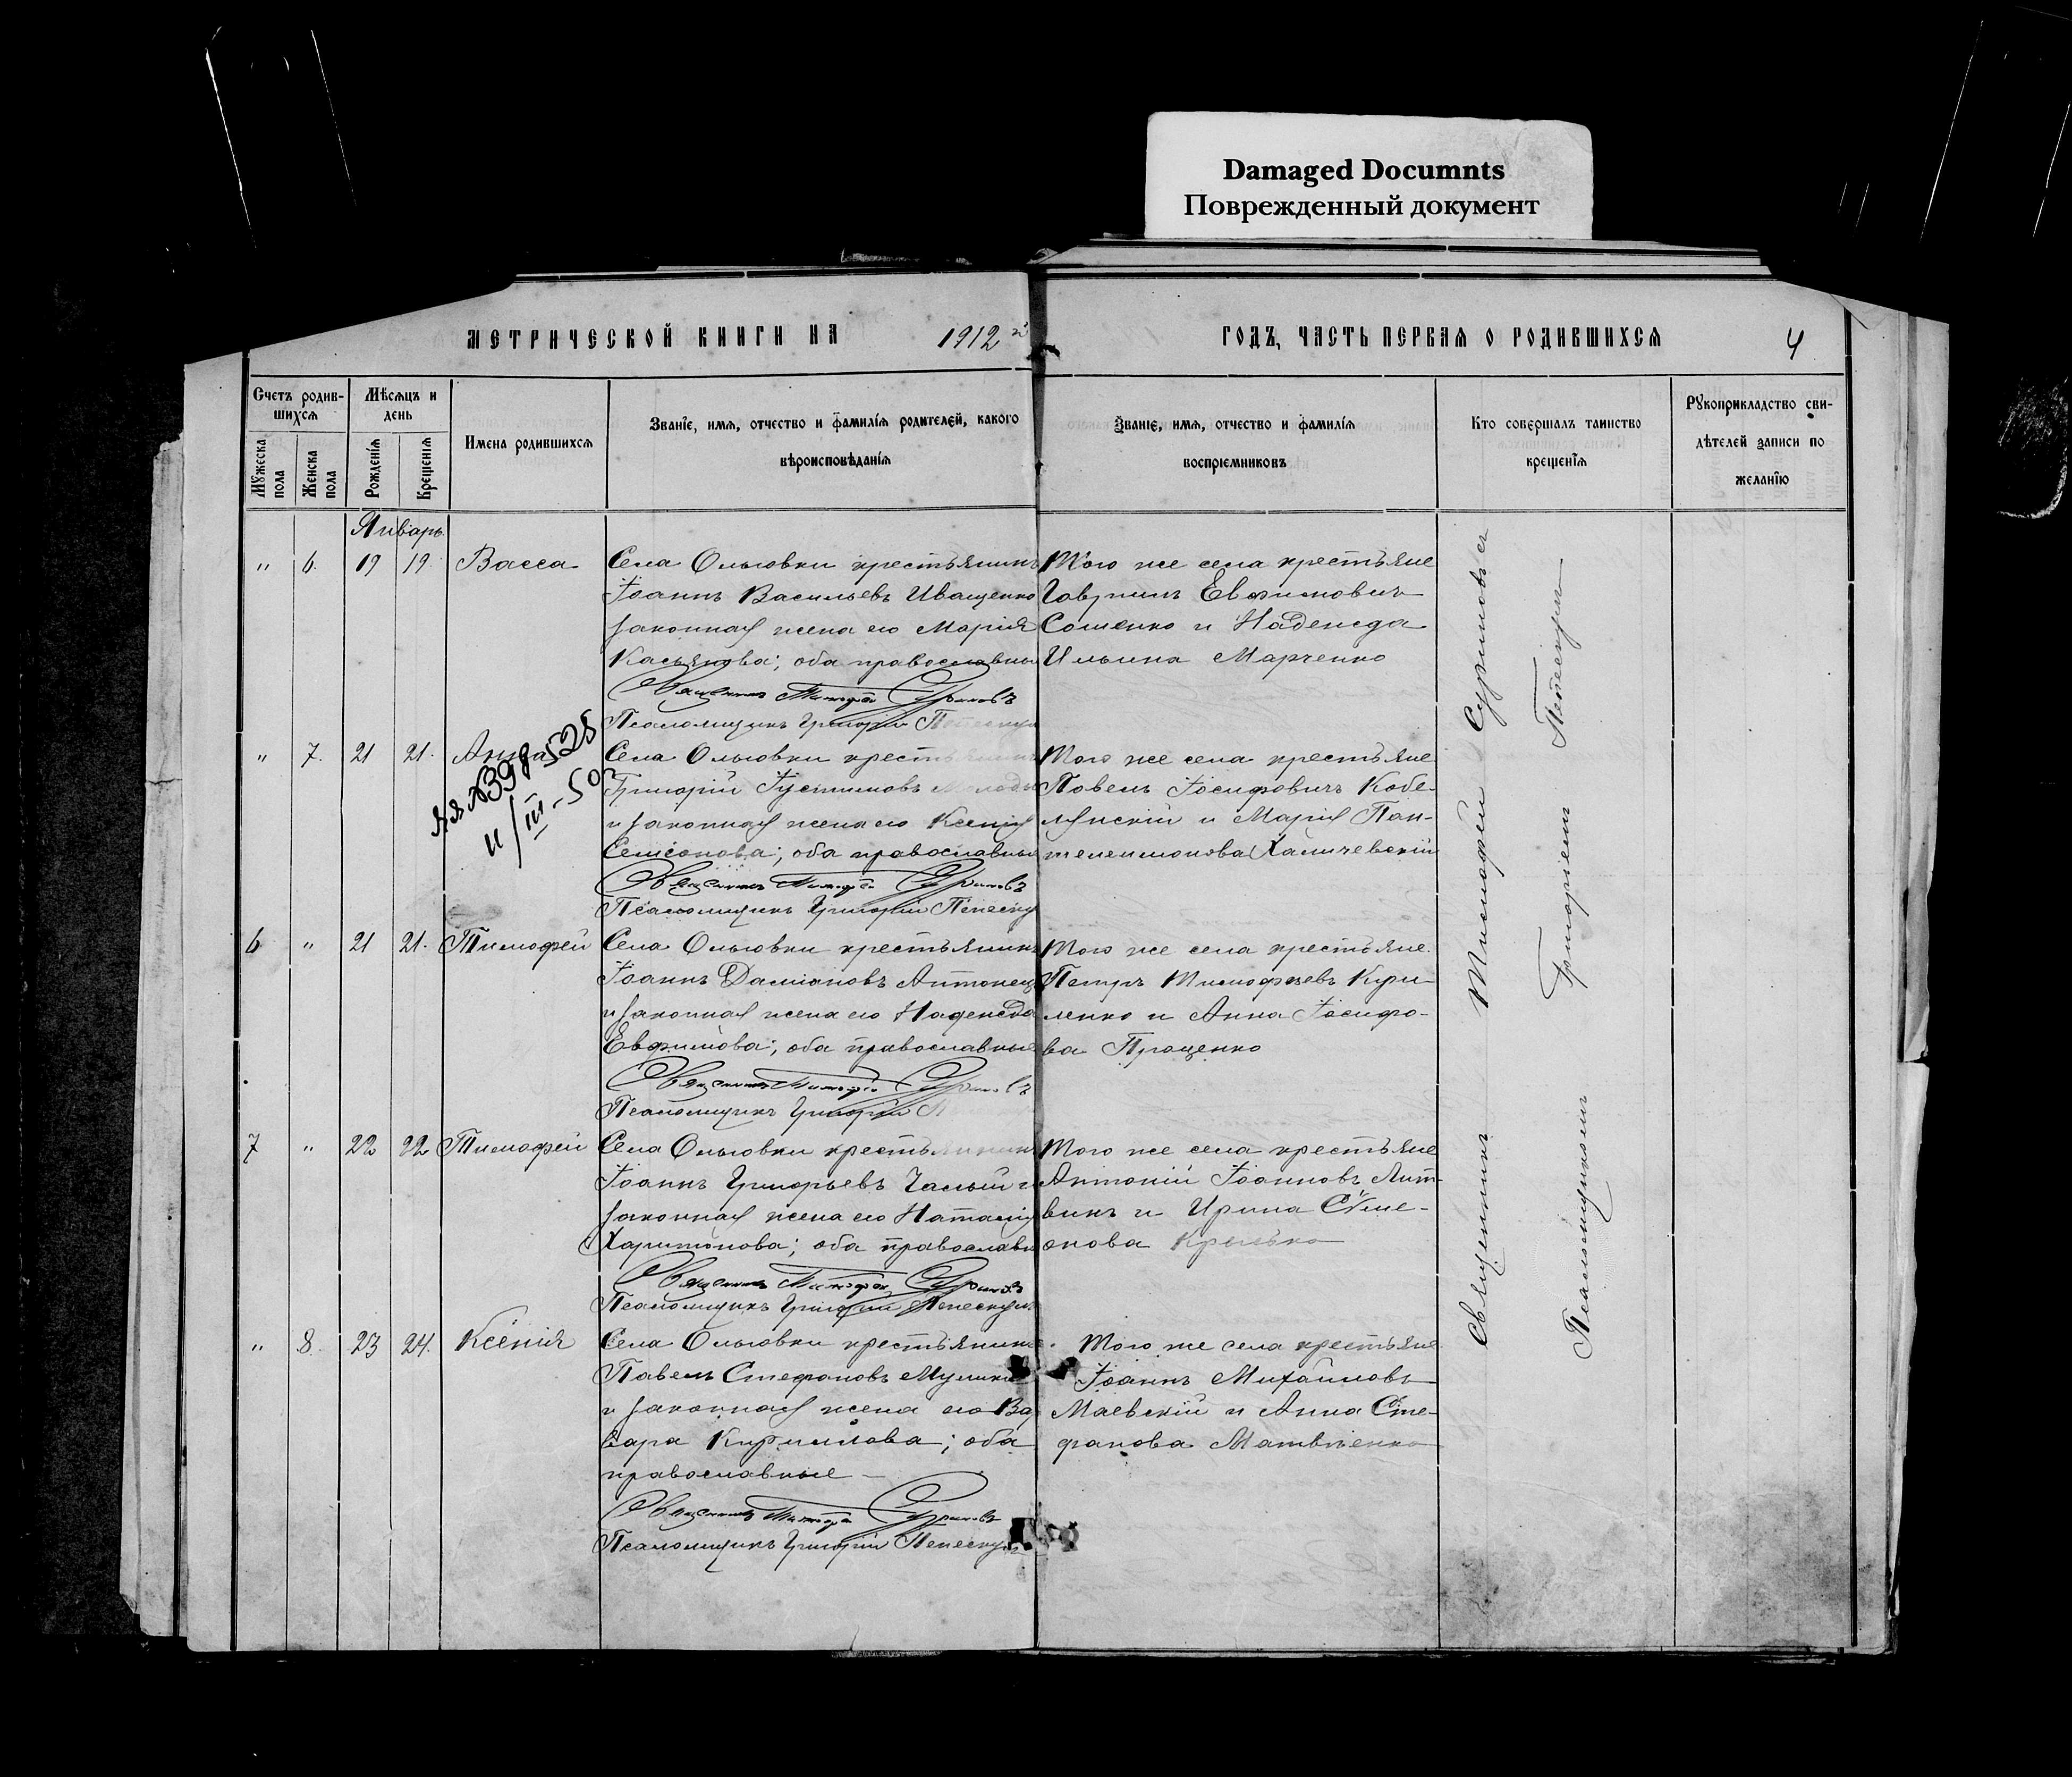 Damaged Documnts
Поврежденный документ
МЕТРИЧЕСКОЙ КНИГИ НА 1912 й ГОДЪ, ЧАСТЬ ПЕРВАЯ О РОДИВШИХСЯ 4
Счетъ родив-
шихся
Мѣсяцъ и
день
Мужеска
пола
Женска
пола
Рожденія
Крещенія
Имена родившихся
Званіе, имя, отчество и фамилія родителей, какого
вѣроисповѣданія
Званіе, имя, отчество и фамилія
воспріемниковъ
Кто совершалъ таинство
крещенія
Рукоприкладство сви-
дѣтелей записи по
желанію
Январь
" 6. 19 19. Васса
Села Ольговки крестьянинъ
Іоаннъ Васильевъ Иващенко
законная жена его Марія
Касьянова; оба православны
Священникъ Тимофей Суриновъ
Псаломщикъ Григорій
Того же села крестьяне
Гавриилъ Евфимовичъ
Сошенко и Надежда
Ильина Марченко
" 7. 21 21. Анна
11/III-50
Села Ольговки крестьянинъ
Григорій Іустиновъ
и законная жена его Ксенія
Симеонова; оба православные
Священникъ Тимофей Суриновъ
Псаломщикъ Григорій Пепеску
Того же села крестьяне
Павелъ Іосифовичъ Кобе-
лянскій и Марія Пан-
телеимонова Халичевскій
6 " 21 21. Тимофей
Села Ольговки крестьянинъ
Іоаннъ Даміановъ Антонец
и законная жена его Надежда
Евфимова; оба православные
Священникъ Тимофей Суриновъ
Псаломщикъ Григорій
Того же села крестьяне.
Петръ Тимофеевъ Кири-
ленко и Анна Іосифо-
ва Проценко
7 " 22 22 Тимофей
Села Ольговки крестьянинъ
Іоаннъ Григорьевъ Чалый и
законная жена его Наталія
Харитонова; оба православн
Священникъ Тимофей Суриновъ
Псаломщикъ Григорій Пепескулъ
Того же села крестьяне
Антоній Іоанновъ Лит-
винъ и Ирина Симе-
онова
" 8. 23 24. Ксенія
Села Ольговки крестьянинъ
Павелъ Стефановъ
и законная жена его Вар
вара Кириллова; оба
православные
Священникъ Тимофей Суриновъ
Псаломщикъ Григорій Пепескулъ
Того же села крестьяне
Іоаннъ Михайловъ
Маевскій и Анна Сте-
фанова Матвѣенко
Священникъ Тимофей Суриновъ съ
Псаломщикомъ Григоріемъ Пепескулъ